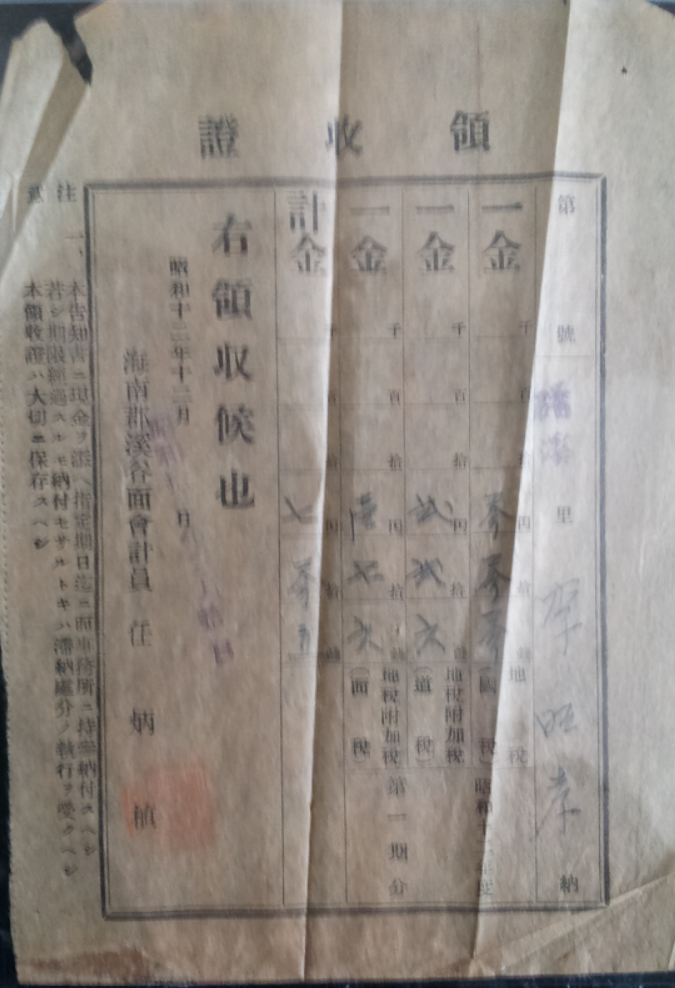 領收證
第 號 里 納
一金 千 百 拾 円 拾 錢 地稅(國稅)
參 參 參
昭和十 年度
一金 千 百 拾 円 拾 錢 地稅附加稅(道稅)
貳 貳 六
一金 千 百 拾 円 拾 錢 地稅附加稅(面稅)
六
第一期分
計金 千 百 拾 円 拾 錢
七 參 五
右領收候也
昭和十二年十二月 日
海南郡溪谷面會計員 任炳楨
注意
一、本告知書ニ現金ヲ添ヘ指定期日迄ニ面事務所ニ持參納付スベシ
若シ期限經過スルモ納付セザルトキハ滯納處分ノ執行ヲ受クベシ
本領收證ハ大切ニ保存スベシ